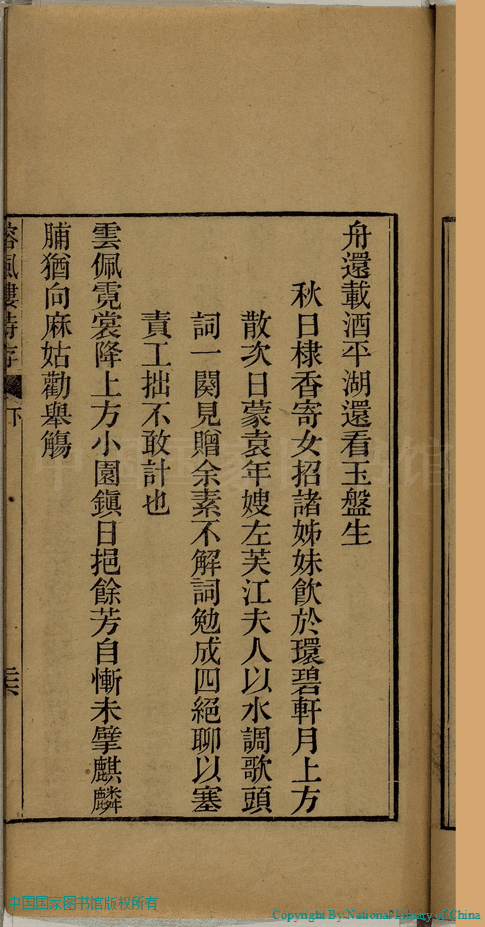 舟還載酒平湖還看玉盤生
秋日棣香寄女招諸姊妹飲於環碧軒月上方
散次日蒙袁年嫂左芙江夫人以水調歌頭
詞一闋見贈余素不解詞勉成四絕聊以塞
責工拙不敢計也
雲佩霓裳降上方小園鎮日挹餘芳自慚未擘麒麟
脯猶向麻姑勸舉觴
風樓詩存 下
中国国家图书馆版权所有
Copyright By National Library of China